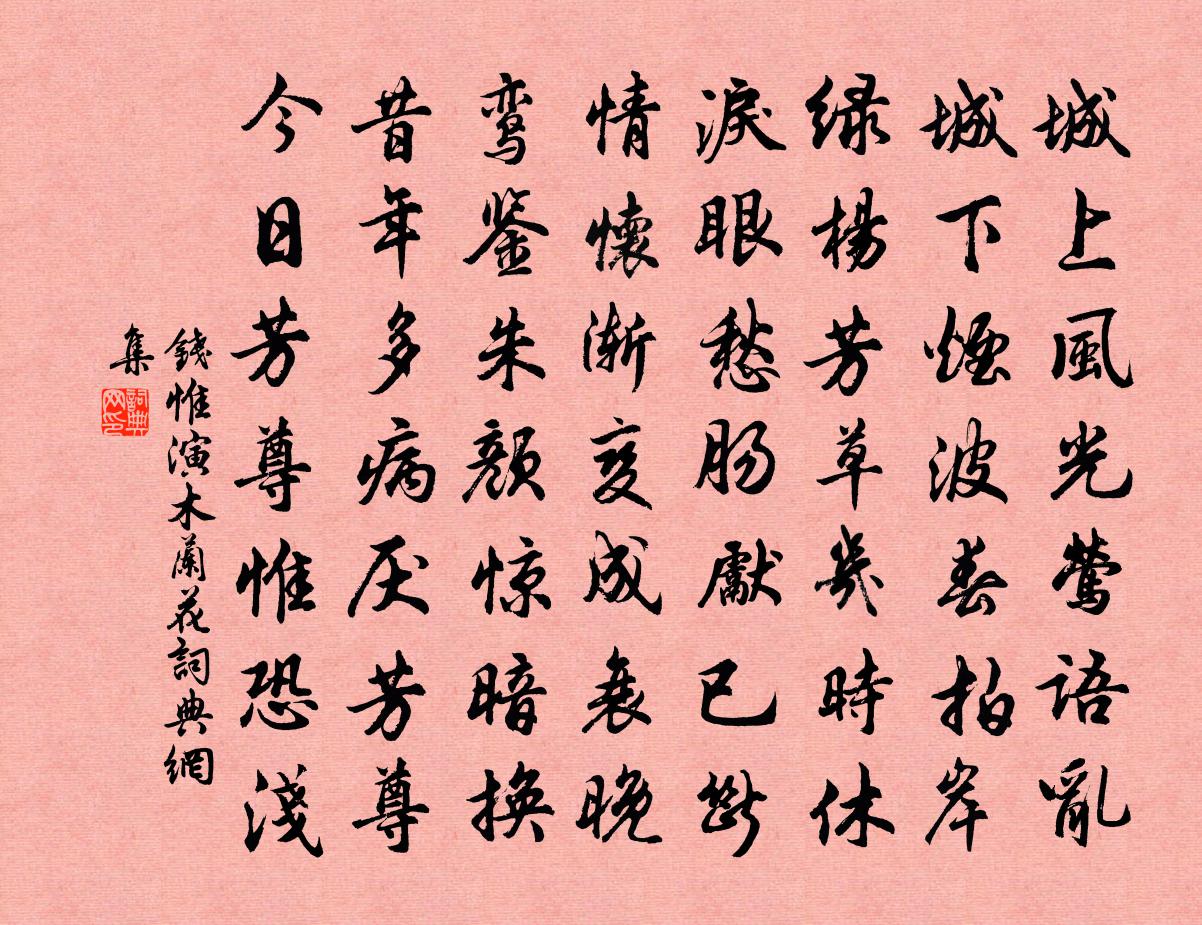 城上風光鶯語亂
城下煙波春拍岸
绿楊芳草幾時休
淚眼愁肠獻已斷
情懷渐变成衰晚
鸾鉴朱颜惊暗换
昔年多病厌芳尊
今日芳尊惟恐淺
錢惟演木蘭花詞典網
集
詞典
网印